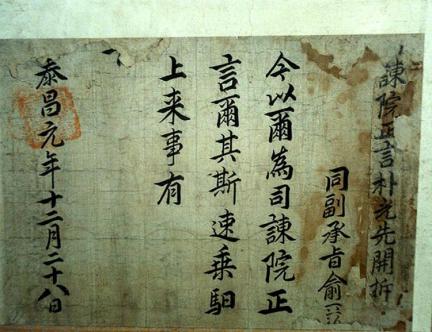 諫院正言朴光先開拆
同副承旨俞
今以爾為司諫院正
言爾其斯速乗馹
上来事有
㫖
泰昌元年十二月二十八日